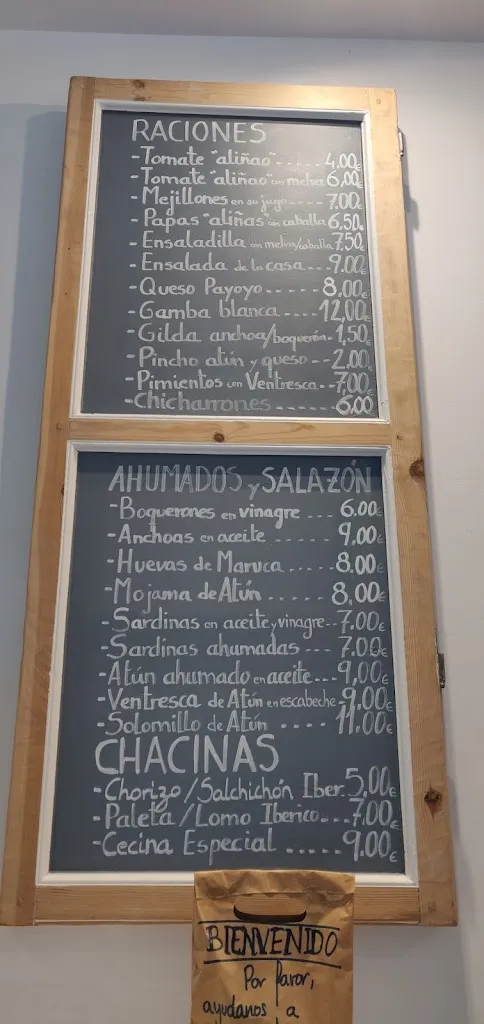 RACIONES
-Tomate "aliñao"..... 4,00€
-Tomate "aliñao" con melva 6,00€
-Mejillones en su jugo.... 7,00€
-Papas "aliñás" con caballa 6,50€
-Ensaladilla con melva/caballa 7,50€
-Ensalada de la casa... 9,00€
-Queso Payoyo..... 8,00€
-Gamba blanca.... 12,00€
-Gilda anchoa/boquerón- 1,50€
-Pincho atún y queso -- 2,00€
-Pimientos con Ventresca.. 7,00€
-Chicharrones...... 6,00
AHUMADOS y SALAZÓN
-Boquerones en vinagre .... 6.00€
-Anchoas en aceite ..... 9,00€
-Huevas de Maruca ..... 8.00€
-Mojama de Atún...... 8,00€
-Sardinas en aceite y vinagre-- 7.00€
-Sardinas ahumadas --- 7.00€
-Atún ahumado en aceite... 9,00€
-Ventresca de Atún en escabeche- 9,00€
-Solomillo de Atún .... 11.00€
CHACINAS
-Chorizo/Salchichón Iber. 5,00€
-Paleta/Lomo Iberico... 7.00€
-Cecina Especial ..... 9.00€
BIENVENIDO
Por favor,
ayudanos a